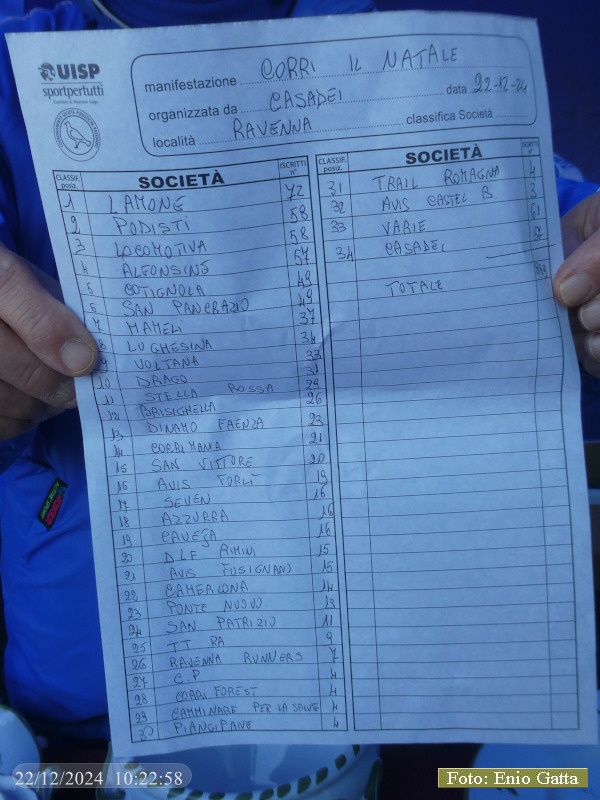 UISP
sportpertutti
manifestazione CORRI IL NATALE
organizzata da CASADEI data 22-12-24
località RAVENNA classifica Società
CLASSIF. posiz. SOCIETÀ ISCRITTI n°
1 LAMONE 72
2 PODISTI 58
3 LOCOMOTIVA 58
4 ALFONSINE 57
5 COTIGNOLA 49
6 SAN PANCRAZIO 49
7 MAMELI 37
8 LUGHESINA 34
9 VOLTANA 33
10 DRAGO 31
11 STELLA ROSSA 29
12 BRISIGHELLA 26
13 DINAMO FAENZA 23
14 CORRIMANIA 21
15 SAN VITTORE 20
16 AVIS FORLÌ 19
17 SEVEN 16
18 AZZURRA 16
19 CAVEJA 16
20 DLF RIMINI 15
21 AVIS FUSIGNANO 15
22 CAMERLONA 14
23 PONTE NUOVO 13
24 SAN PATRIZIO 11
25 TT RA 9
26 RAVENNA RUNNERS 7
27 C.P 4
28 CORRI FOREST 4
29 CAMMINARE PER LA SALUTE 4
30 PIANGIPANE 4
CLASSIF. posiz. SOCIETÀ
31 TRAIL ROMAGNA 4
32 AVIS CASTEL B 3
33 VARIE 61
34 CASADEI
TOTALE
22/12/2024 10:22:58
Foto: Enio Gatta